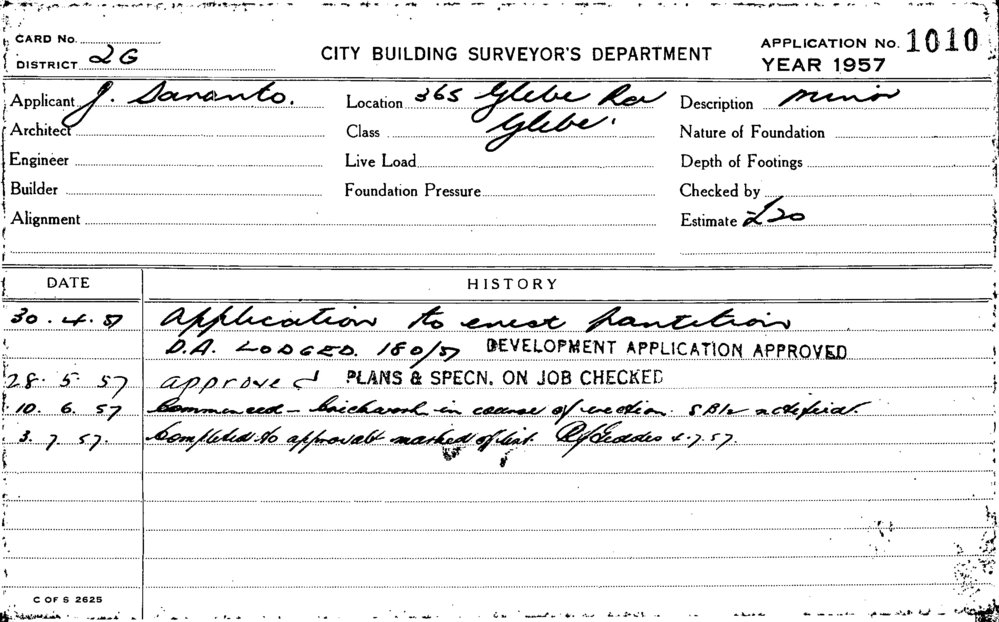 CARD No.
DISTRICT 2G
CITY BUILDING SURVEYOR'S DEPARTMENT
APPLICATION No. 1010
YEAR 1957
Applicant J. Saranto. Location 365 Glebe Rd Description minor
Architect Class Glebe. Nature of Foundation
Engineer Live Load Depth of Footings
Builder Foundation Pressure Checked by
Alignment Estimate £20
DATE HISTORY
30.4.57 Application to erect partition
D.A. LODGED. 180/57 DEVELOPMENT APPLICATION APPROVED
28.5.57 approved PLANS & SPECN. ON JOB CHECKED
10.6.57 Commenced - brickwork in course of erection. notified.
3.7.57. Completed to approval & marked off list. Geddes 4.7.57.
C OF S 2625